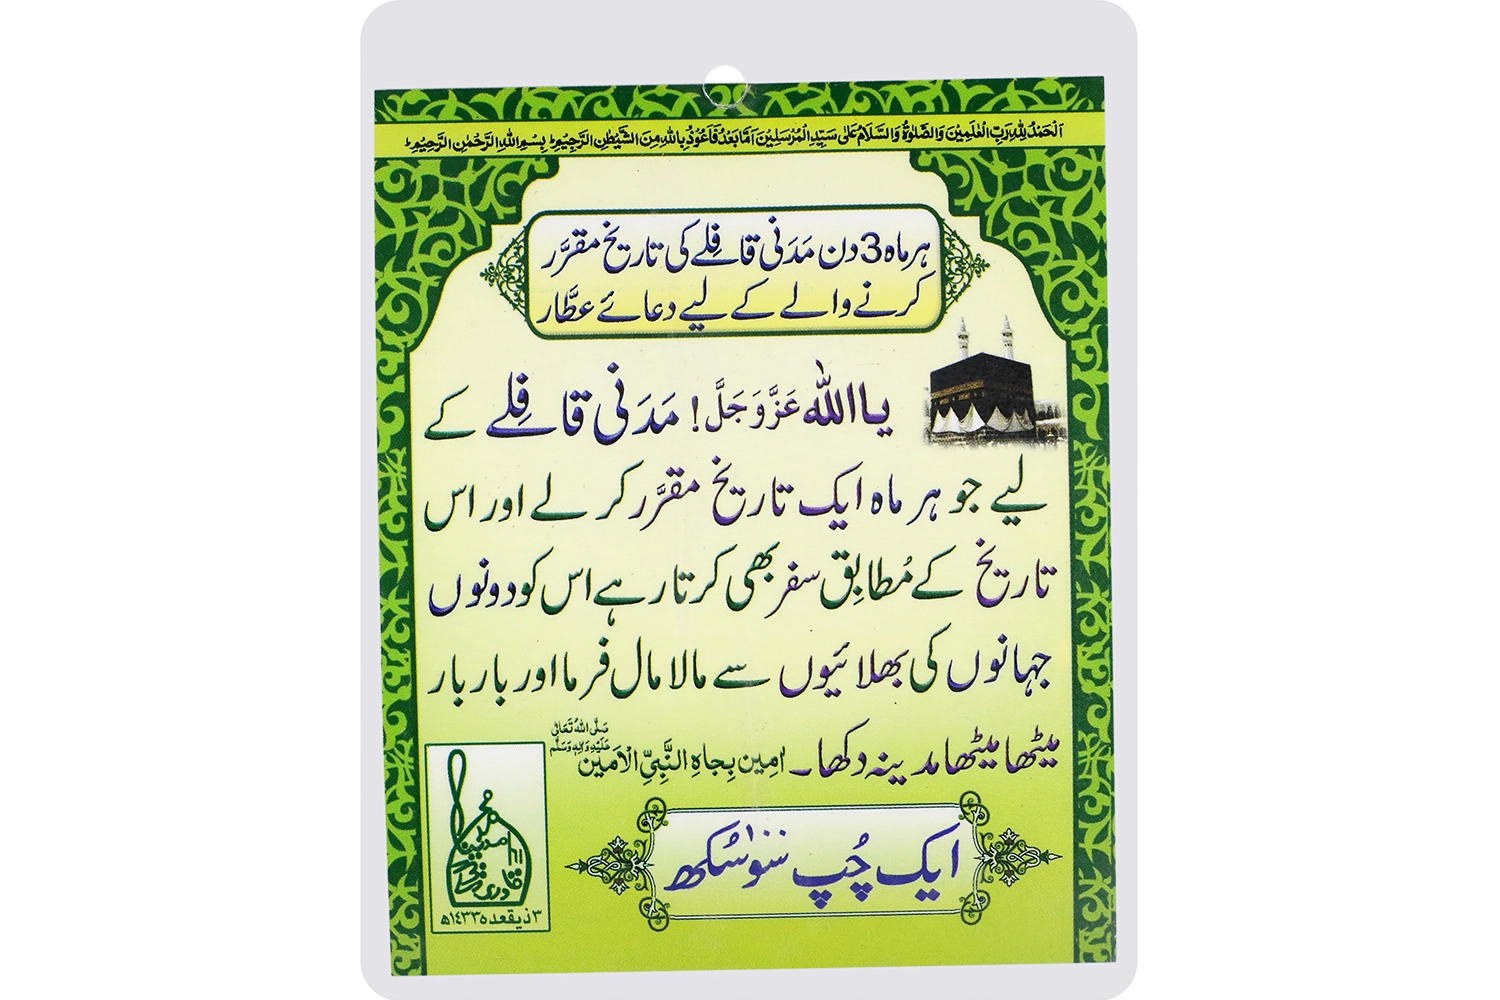 اَلْحَمْدُ لِلّٰہِ رَبِّ الْعٰلَمِیْنَ وَالصَّلٰوۃُ وَالسَّلَامُ عَلٰی سَیِّدِ الْمُرْسَلِیْنَ اَمَّا بَعْدُ فَاَعُوْذُ بِاللّٰہِ مِنَ الشَّیْطٰنِ الرَّجِیْمِ ط بِسْمِ اللّٰہِ الرَّحْمٰنِ الرَّحِیْمِ ط
ہر ماہ 3 دن مَدَنی قافِلے کی تاریخ مقرَّر
کرنے والے کے لیے دعائے عطّار
یااللہ عَزَّوَجَلَّ! مَدَنی قافِلے کے
لیے جو ہر ماہ ایک تاریخ مقرَّر کر لے اور اس
تاریخ کے مُطابِق سفر بھی کرتا رہے اس کو دونوں
جہانوں کی بھلائیوں سے مالا مال فرما اور بار بار
میٹھا میٹھا مدینہ دکھا۔ اٰمِین بِجاہِ النَّبِیِّ الْاَمین صَلَّی اللہُ تَعَالٰی عَلَیْہِ وَاٰلِہٖ وَسَلَّم
ایک چُپ سو۱۰۰ سُکھ
۳ ذیقعدہ ۱۴۳۳ھ